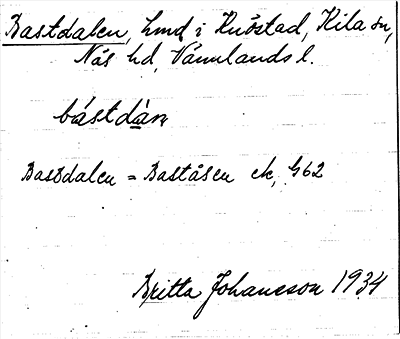 Bastdalen, hmd i Knöstad, Kila sn,
Näs hd, Värmlands l.
bástdàn
Bastdalen = Baståsen ek, G62
Britta Johansson 1934